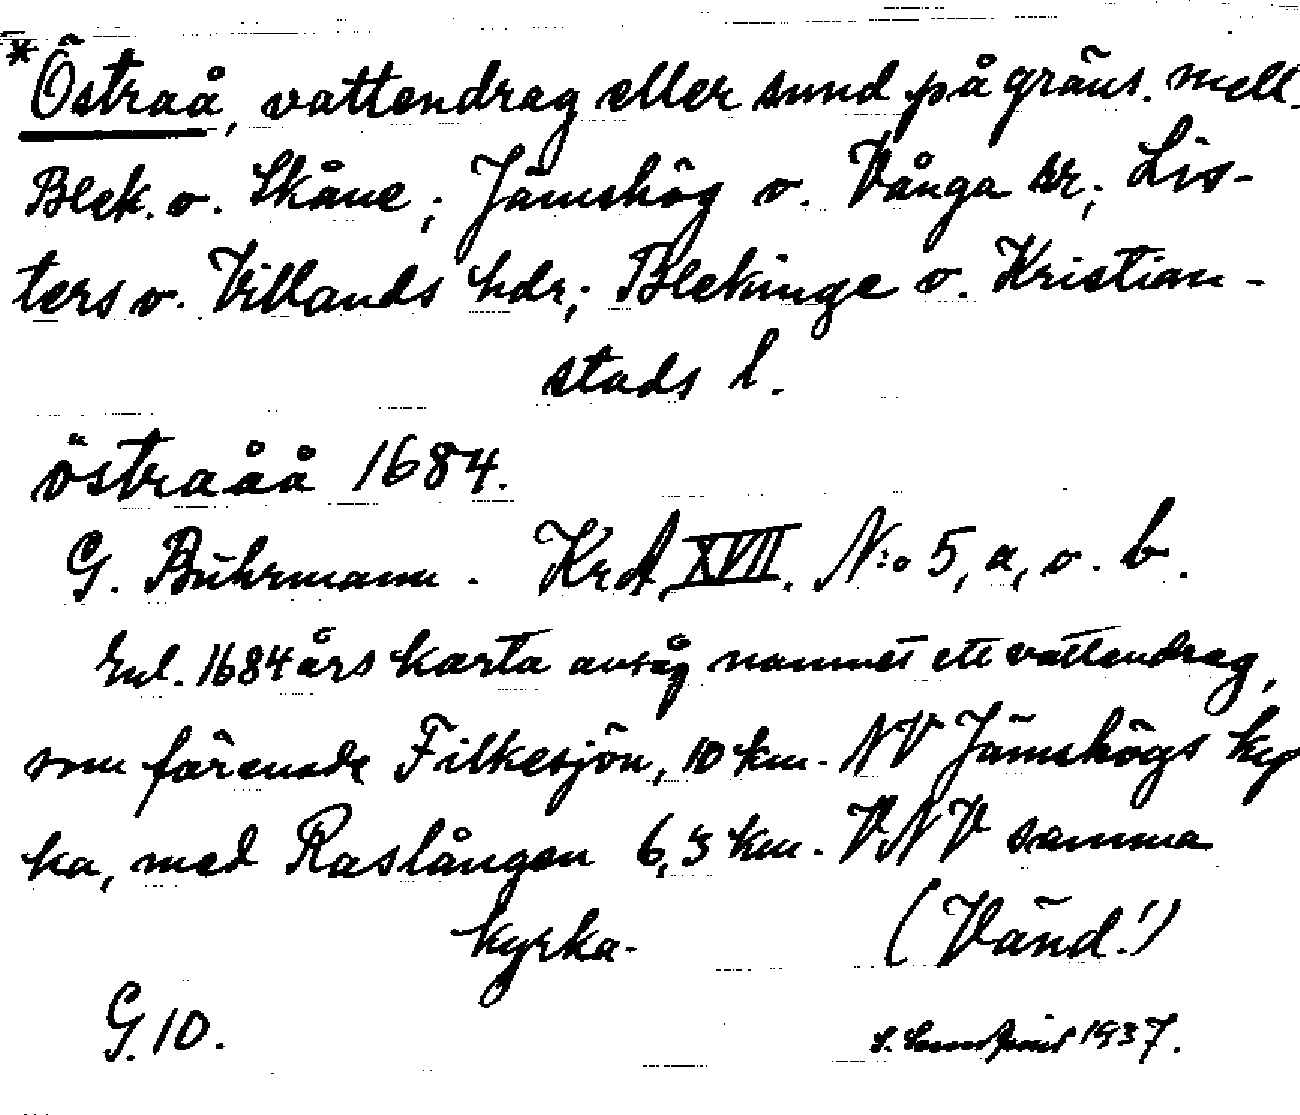 *Östraå, vattendrag eller sund på gräns. mell.
Blek. o. Skåne; Jämshög o. Vånga sr; Lis-
ters o. Villands hdr; Blekinge o. Kristian-
stads l.
östraåå 1684.
G. Buhrmann. KrA XVII. N:o 5, a, o. b.
Enl. 1684 års karta avsåg namnet ett vattendrag,
som förenade Filkesjön, 10 km. NV Jämshögs kyr
ka, med Raslången 6,5 km. VNV samma
kyrka.
(Vänd!)
G. 10.
1937.